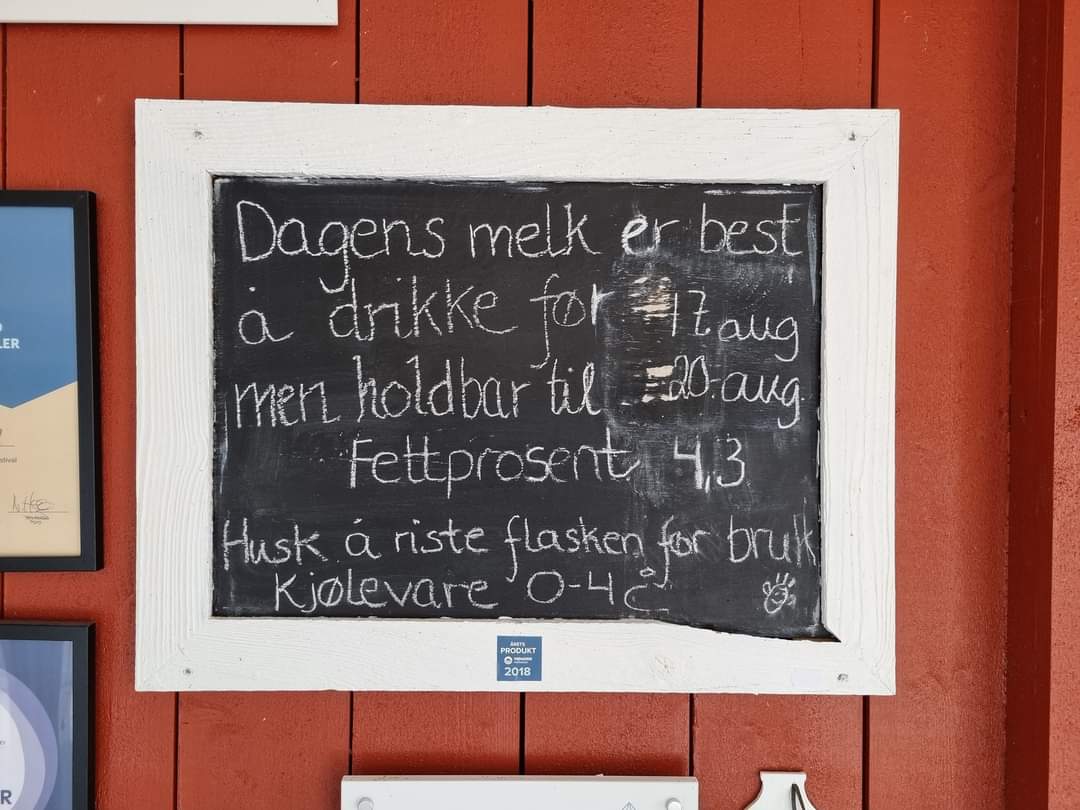 Dagens melk er best
å drikke før 17 aug
men holdbar til 20. aug.
Fettprosent 4,3
Husk å riste flasken før bruk
Kjølevare 0-4 °C
ÅRETS
PRODUKT
2018
LER
stival
R